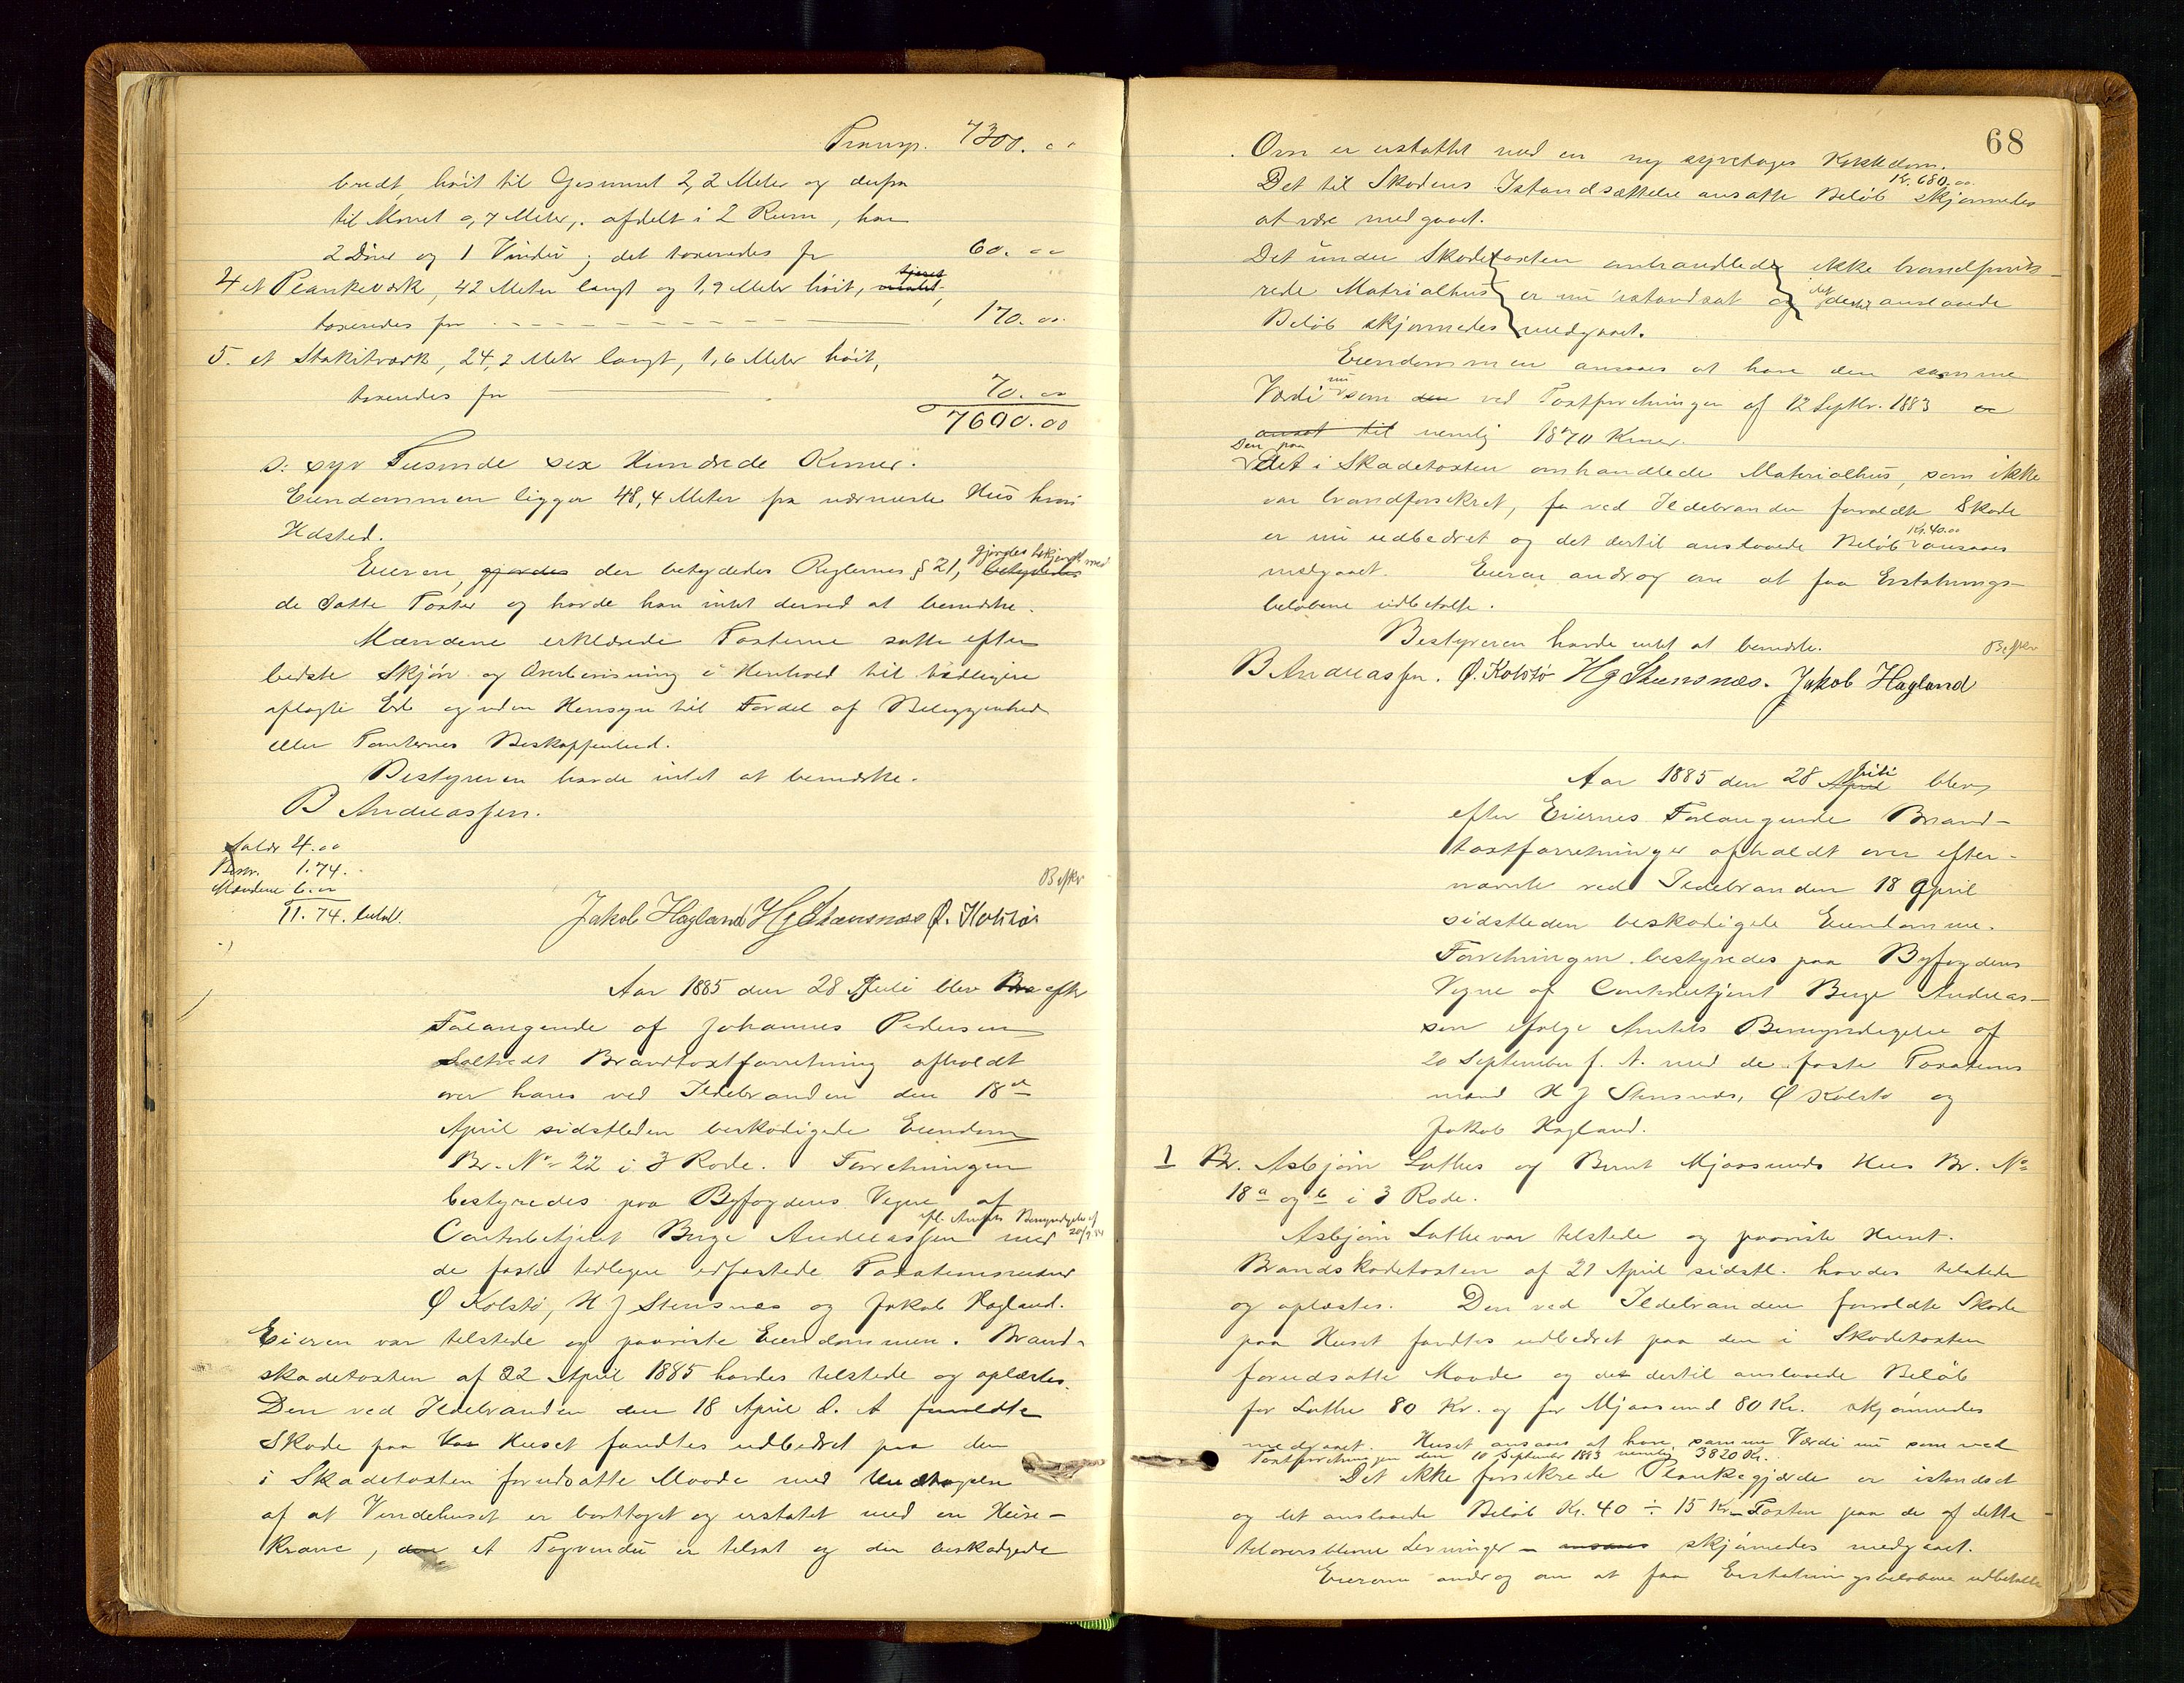 Transp. 7300.00
bredt, höit til Gesimset 2,2 Meter og derfra
til Mønet 0,7 Meter, afdelt i 2 Rum, har
2 Döre og 1 Vindu; det taxeredes for 60.00
4 et Plankeværk, 42 Meter langt og 1,9 Meter höit, tjæret malet,
taxeredes for 170.00
5. et Stakitværk, 24,2 Meter langt, 1,6 Meter höit,
taxeredes for 70.00
7600.00
D: syv Tusinde sex Hundrede Kroner.
Eiendommen ligger 48,4 Meter fra nærmeste Hus hvori
Ildsted.
Eieren, gjordes der betydedes Reglernes § 21, gjordes bekjendt med betydedes
de satte Taxter og havde han intet derved at bemærke.
Mændene erklærede Taxterne satte efter
bedste Skjön og Overbevisning i Henhold til tidligere
aflagte Ed og uden Hensyn til Fordel af Beliggenhed
eller Tomternes Beskaffenhed.
Bestyreren havde intet at bemærke.
B Andreassen.
Salær 4.00
Beskr. 1.74.
Mændene 6.00
11.74. betalt.
Beskr
Jakob Hagland HJ Stensnæs Ø. Kolstø
Aar 1885 den 28 Juli blev Bra efter
Forlangende af Johannes Pedersen
Saltvedt Brandtaxtforretning afholdt
over hans ved Ildebranden den 18de
April sidstleden beskadigede Eiendom
Br. No 22 i 3 Rode. Forretningen
bestyredes paa Byfogdens Vegne af
Contorbetjent Berge Andreassen ifl. Amtets Bemyndigelse af 20/9 84 med
de faste tidligere edfæstede Taxationsmænd
Ø Kolstö, H J Stensnæs og Jakob Hagland.
Eieren var tilstede og paaviste Eiendommen. Brand-
skadetaxten af 22 April 1885 havdes tilstede og oplæstes.
Den ved Ildebranden den 18 April d. A forvoldte
Skade paa Huset fandtes udbedret paa den
i Skadetaxten forudsatte Maade med Undtagelse
af at Vindehuset er borttaget og erstatet med en Heise-
krane, den et Tagvindu er tilsat og den beskadigede
68
Ovn er erstattet med en ny syvetages Kakkelovn.
Det til Skadens Istandsættelse ansatte Beløb Kr. 680.00 skjønnedes
at være medgaaet.
Det under Skadetaxten omhandlede ikke brandforsik-
rede Matrialhus er nu istandsat og det dertil anslaaede
Beløb skjønnedes medgaaet.
Eiendommen ansaaes at have den samme
Værdi nu som den ved Taxtforretningen af 12 Septbr. 1883 er
ansat til nemlig 1870 Kroner.
Den paa Det i Skadetaxten omhandlede Matrialhus, som ikke
var brandforsikret, fo ved Ildebranden forvoldte Skade
er nu udbedret og det dertil anslaaede Beløb Kr. 40.00 ansaaes
medgaaet. Eieren androg om at faa Erstatnings-
beløbene udbetalte.
Bestyreren havde intet at bemærke. Beskr
B Andreassen. Ø. Kolstø HJ Stensnæs. Jakob Hagland
Aar 1885 den 28 April Juli blev
efter Eiernes Forlangende Brand-
taxtforretninger afholdt over efter-
nævnte ved Ildebranden 18 April
sidstleden beskadigede Eiendomme.
Forretningen bestyredes paa Byfogdens
Vegne af Contorbetjent Berge Andreas-
sen ifølge Amtets Bemyndigelse af
20 September f. A. med de faste Taxations
mænd H J Stensnæs, Ø Kolstø og
Jakob Hagland.
1 Br. Asbjørn Lothes og Bernt Mjaasunds Hus Br. No
18 a og b i 3 Rode.
Asbjörn Lothe var tilstede og paaviste Huset.
Brandskadetaxten af 21 April sidstl. havdes tilstede
og oplæstes. Den ved Ildebranden forvoldte Skade
paa Huset fandtes udbedret paa den i Skadetaxten
forudsatte Maade og det dertil anslaaede Beløb
for Lothe 80 Kr. og for Mjaasund 80 Kr. skjönnedes
medgaaet. Huset ansaaes at have samme Værdi nu som ved
Taxtforretningen den 10 September 1883 nemlig 3820 Kr.
Det ikke forsikrede Plankegjærde er istandsat
og det anslaaede Beløb Kr. 40 ÷ 15 Kr. Taxten paa de af dette
tiloversblevne Levninger – ansaaes skjönnedes medgaaet.
Eierne androg om at faa Erstatningsbeløbene udbetalte